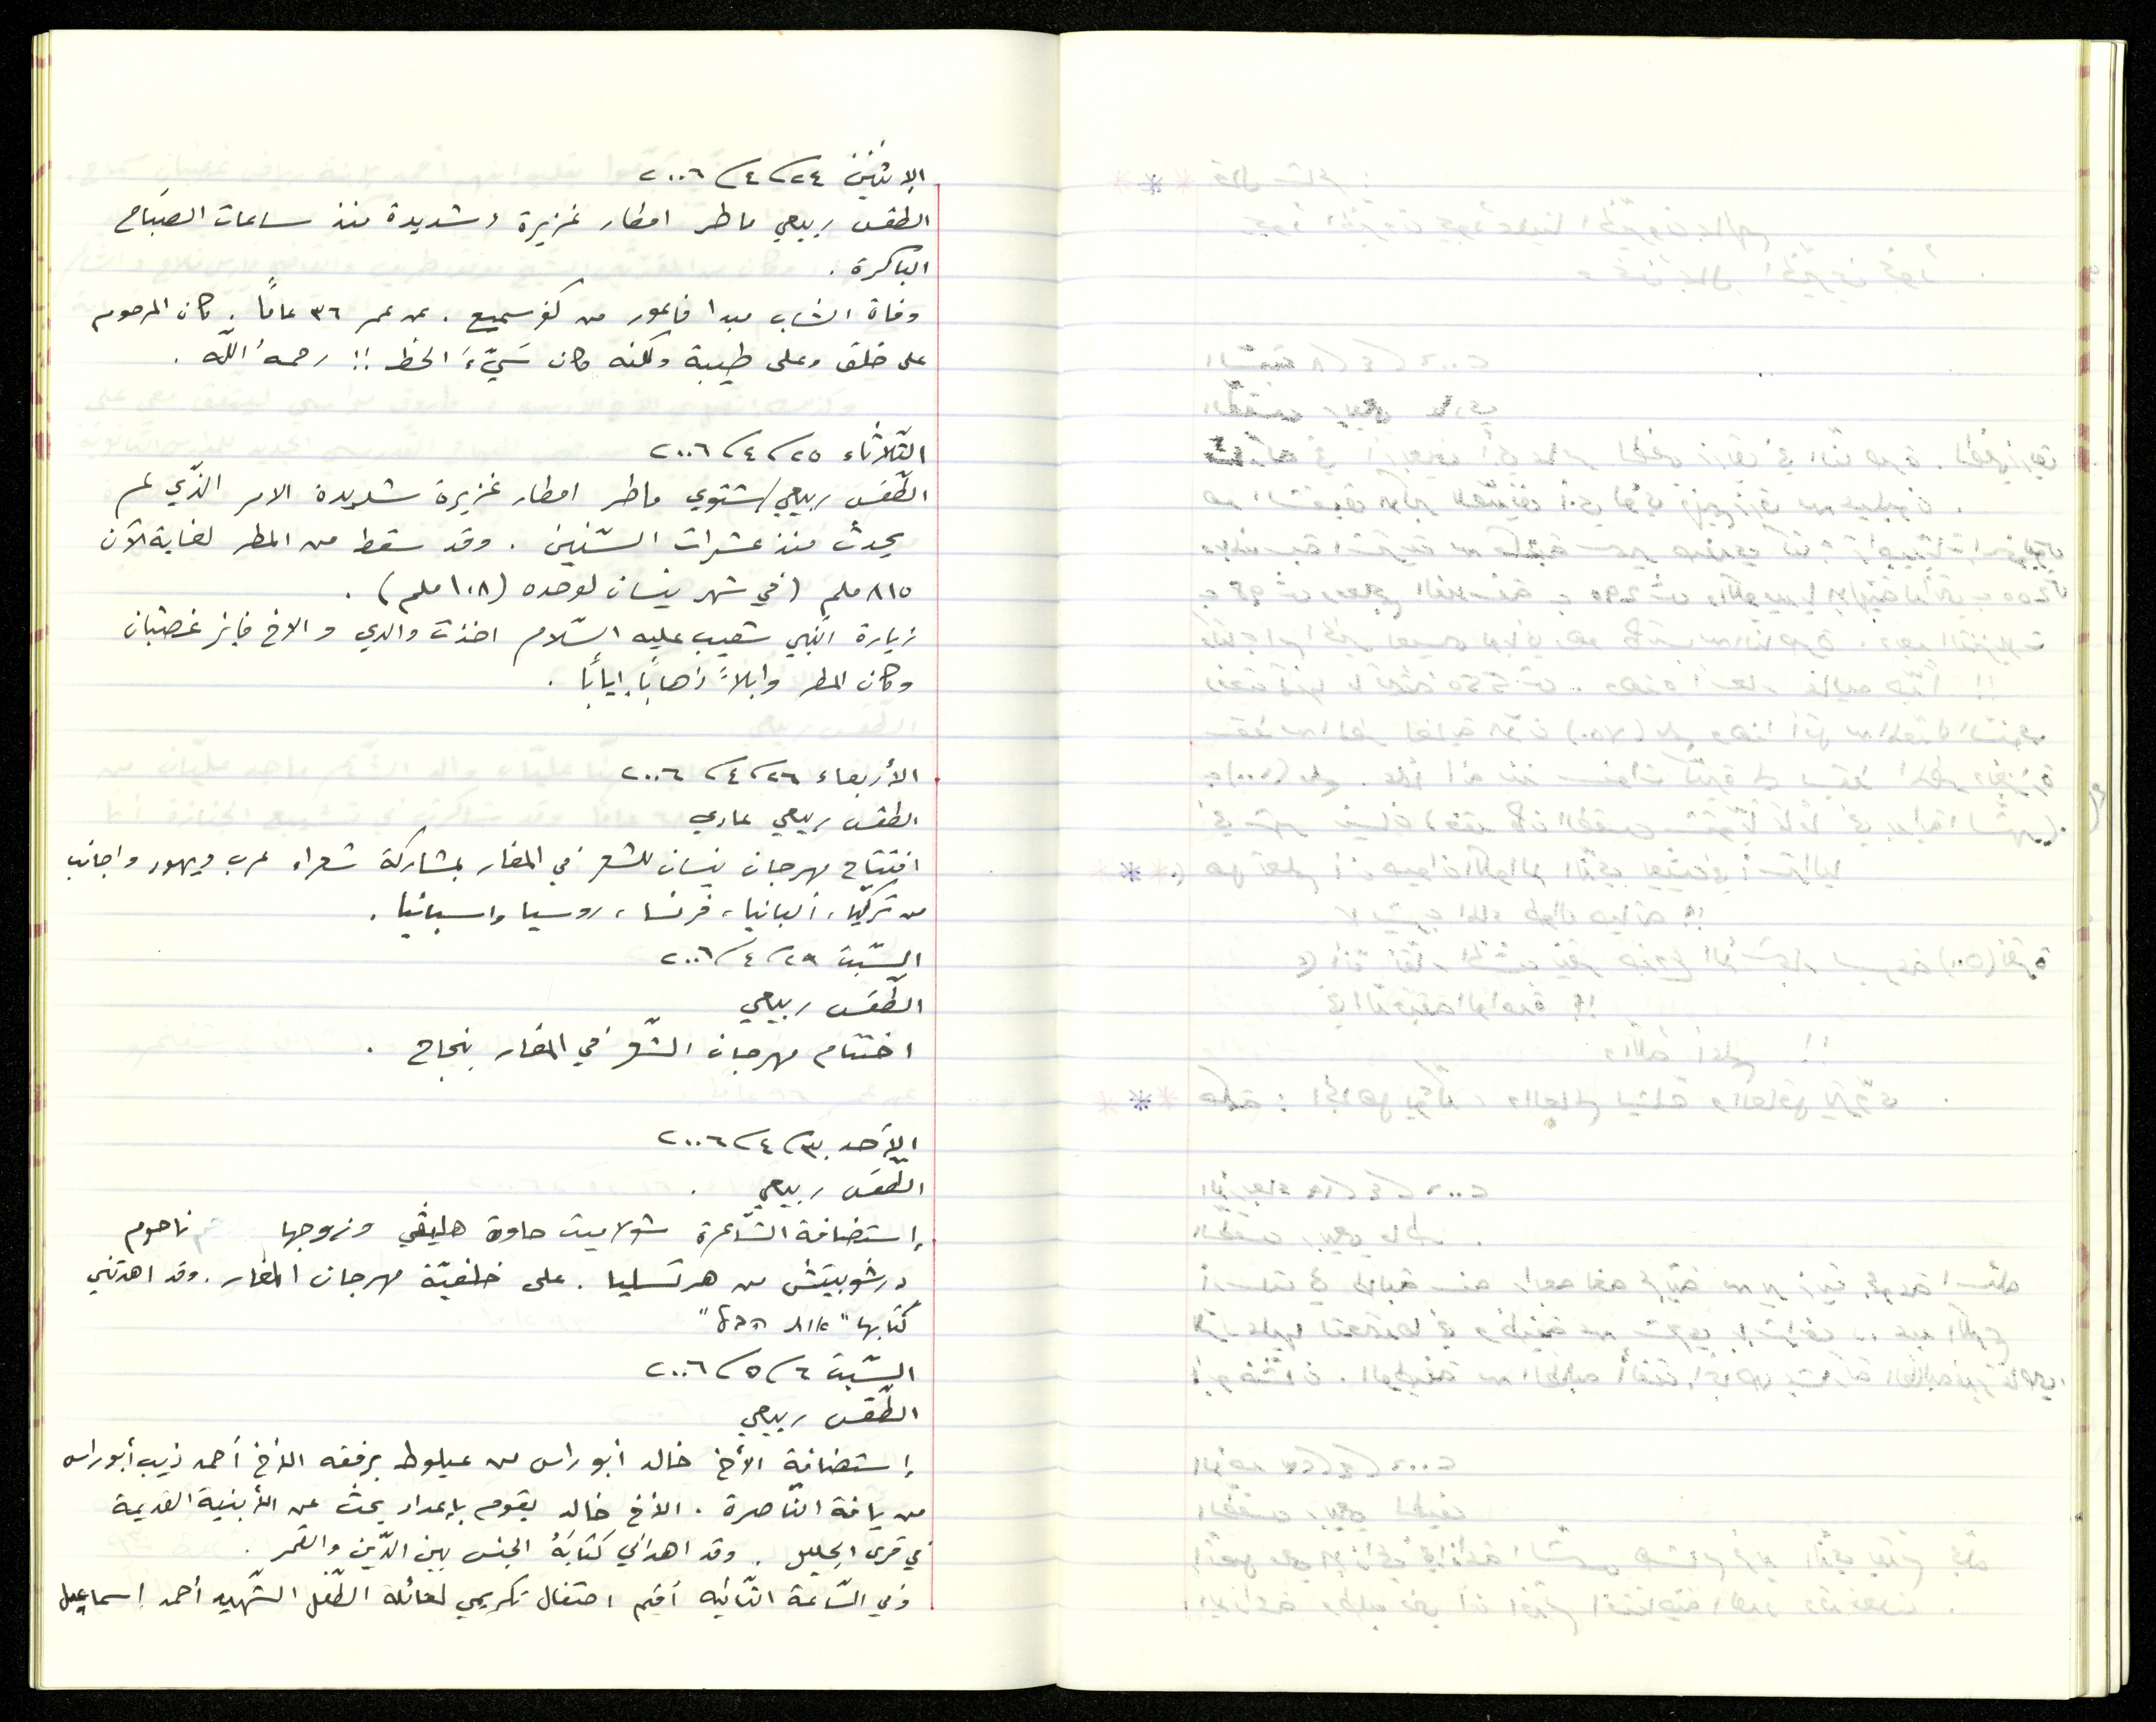 الإثنين ٢٤/٤/٢٠٠٦
الطقس ربيعي ماطر امطار غزيرة وشديدة منذ ساعات الصباح
الباكرة .
وفاة الشاب مبدا فاعور من كفر سميع . عن عمر ٣٦ عامًا . كان المرحوم
على خلق وعلى طيبة ولكنه كان سَيّءَ الحظ !! رحمهُ اللّه .
الثّلاثاء ٢٥/٤/٢٠٠٦
الطّقس ربيعي/شتوي ماطر امطار غزيرة شديدة الامر الذّي لم
يحدث منذ عشرات السّنين . وقد سقط من المطر لغاية الآن
٨١٥ ملم (في شهر نيسان لوحده (١٠٨ ملم) .
زيارة النّبي شعيب عليه السّلام اخذت والدي والاخ فايز غضبان
وكان المطر وابلاً ذهابًا إيابًا .
الأربعاء ٢٦/٤/٢٠٠٦
الطقس ربيعي عادي
افتتاح مهرجان نيسان للشعر في المغار بمشاركة شعراء عرب ويهود واجانب
من تركيا، ألبانيا، فرنسا، روسيا واسبانيا .
السّبت ٢٩/٤/٢٠٠٦
الطّقس ربيعي
اختتام مهرجان الشّعر في المغار بنجاح .
الأحد ٣٠/٤/٢٠٠٦
الطّقس ربيعي .
إستضافة الشّاعرة شولاميت حاوة هليڤي وزوجها ناحوم
درشوبيتش من هرتسليا . على خلفيّة مهرجان المغار . وقد اهدتني
كتابها "
السّبت ٦/٥/٢٠٠٦
الطّقس ربيعي
إستضافة الأخ خالد أبو راس من عيلوط برفقه الأخ أحمد ذيب أبو راس
من يافة النّاصرة . الأخ خالد يقوم بإعداد بحث عن الأبنية القديمة
في قرى الجليل . وقد اهداني كتابَهُ الجنس بين الدّين والقمر .
وفي السّاعة الثّانيه أقيم احتفال تكريمي لعائلة الطّفل الشّهيد أحمد إسماعيل